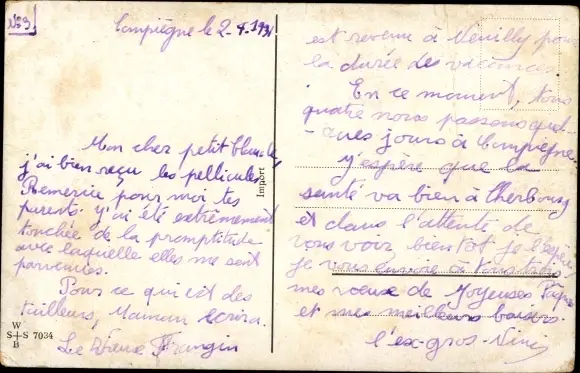 N°9
Compiègne le 2-4-1931
Mon cher petit
j'ai bien reçu les pellicules
Remercie pour moi tes
parents. j'ai été extrêmement
touchée de la promptitude
avec laquelle elles me sont
parvenues.
Pour ce qui est des
tailleurs, Maman écrira.
Le Vieux Frangin
W
S+S 7034
B
Import
est revenu à Neuilly pour
la durée des vacances.
En ce moment, tous
quatre nous passons quel-
-ques jours à Compiègne.
j'espère que la
santé va bien à Cherbourg
et dans l'attente de
vous voir bientôt je l'espère,
je vous envoie à tous
mes vœux de Joyeuses Pâques
et mes meilleurs baisers.
l'ex-gros-